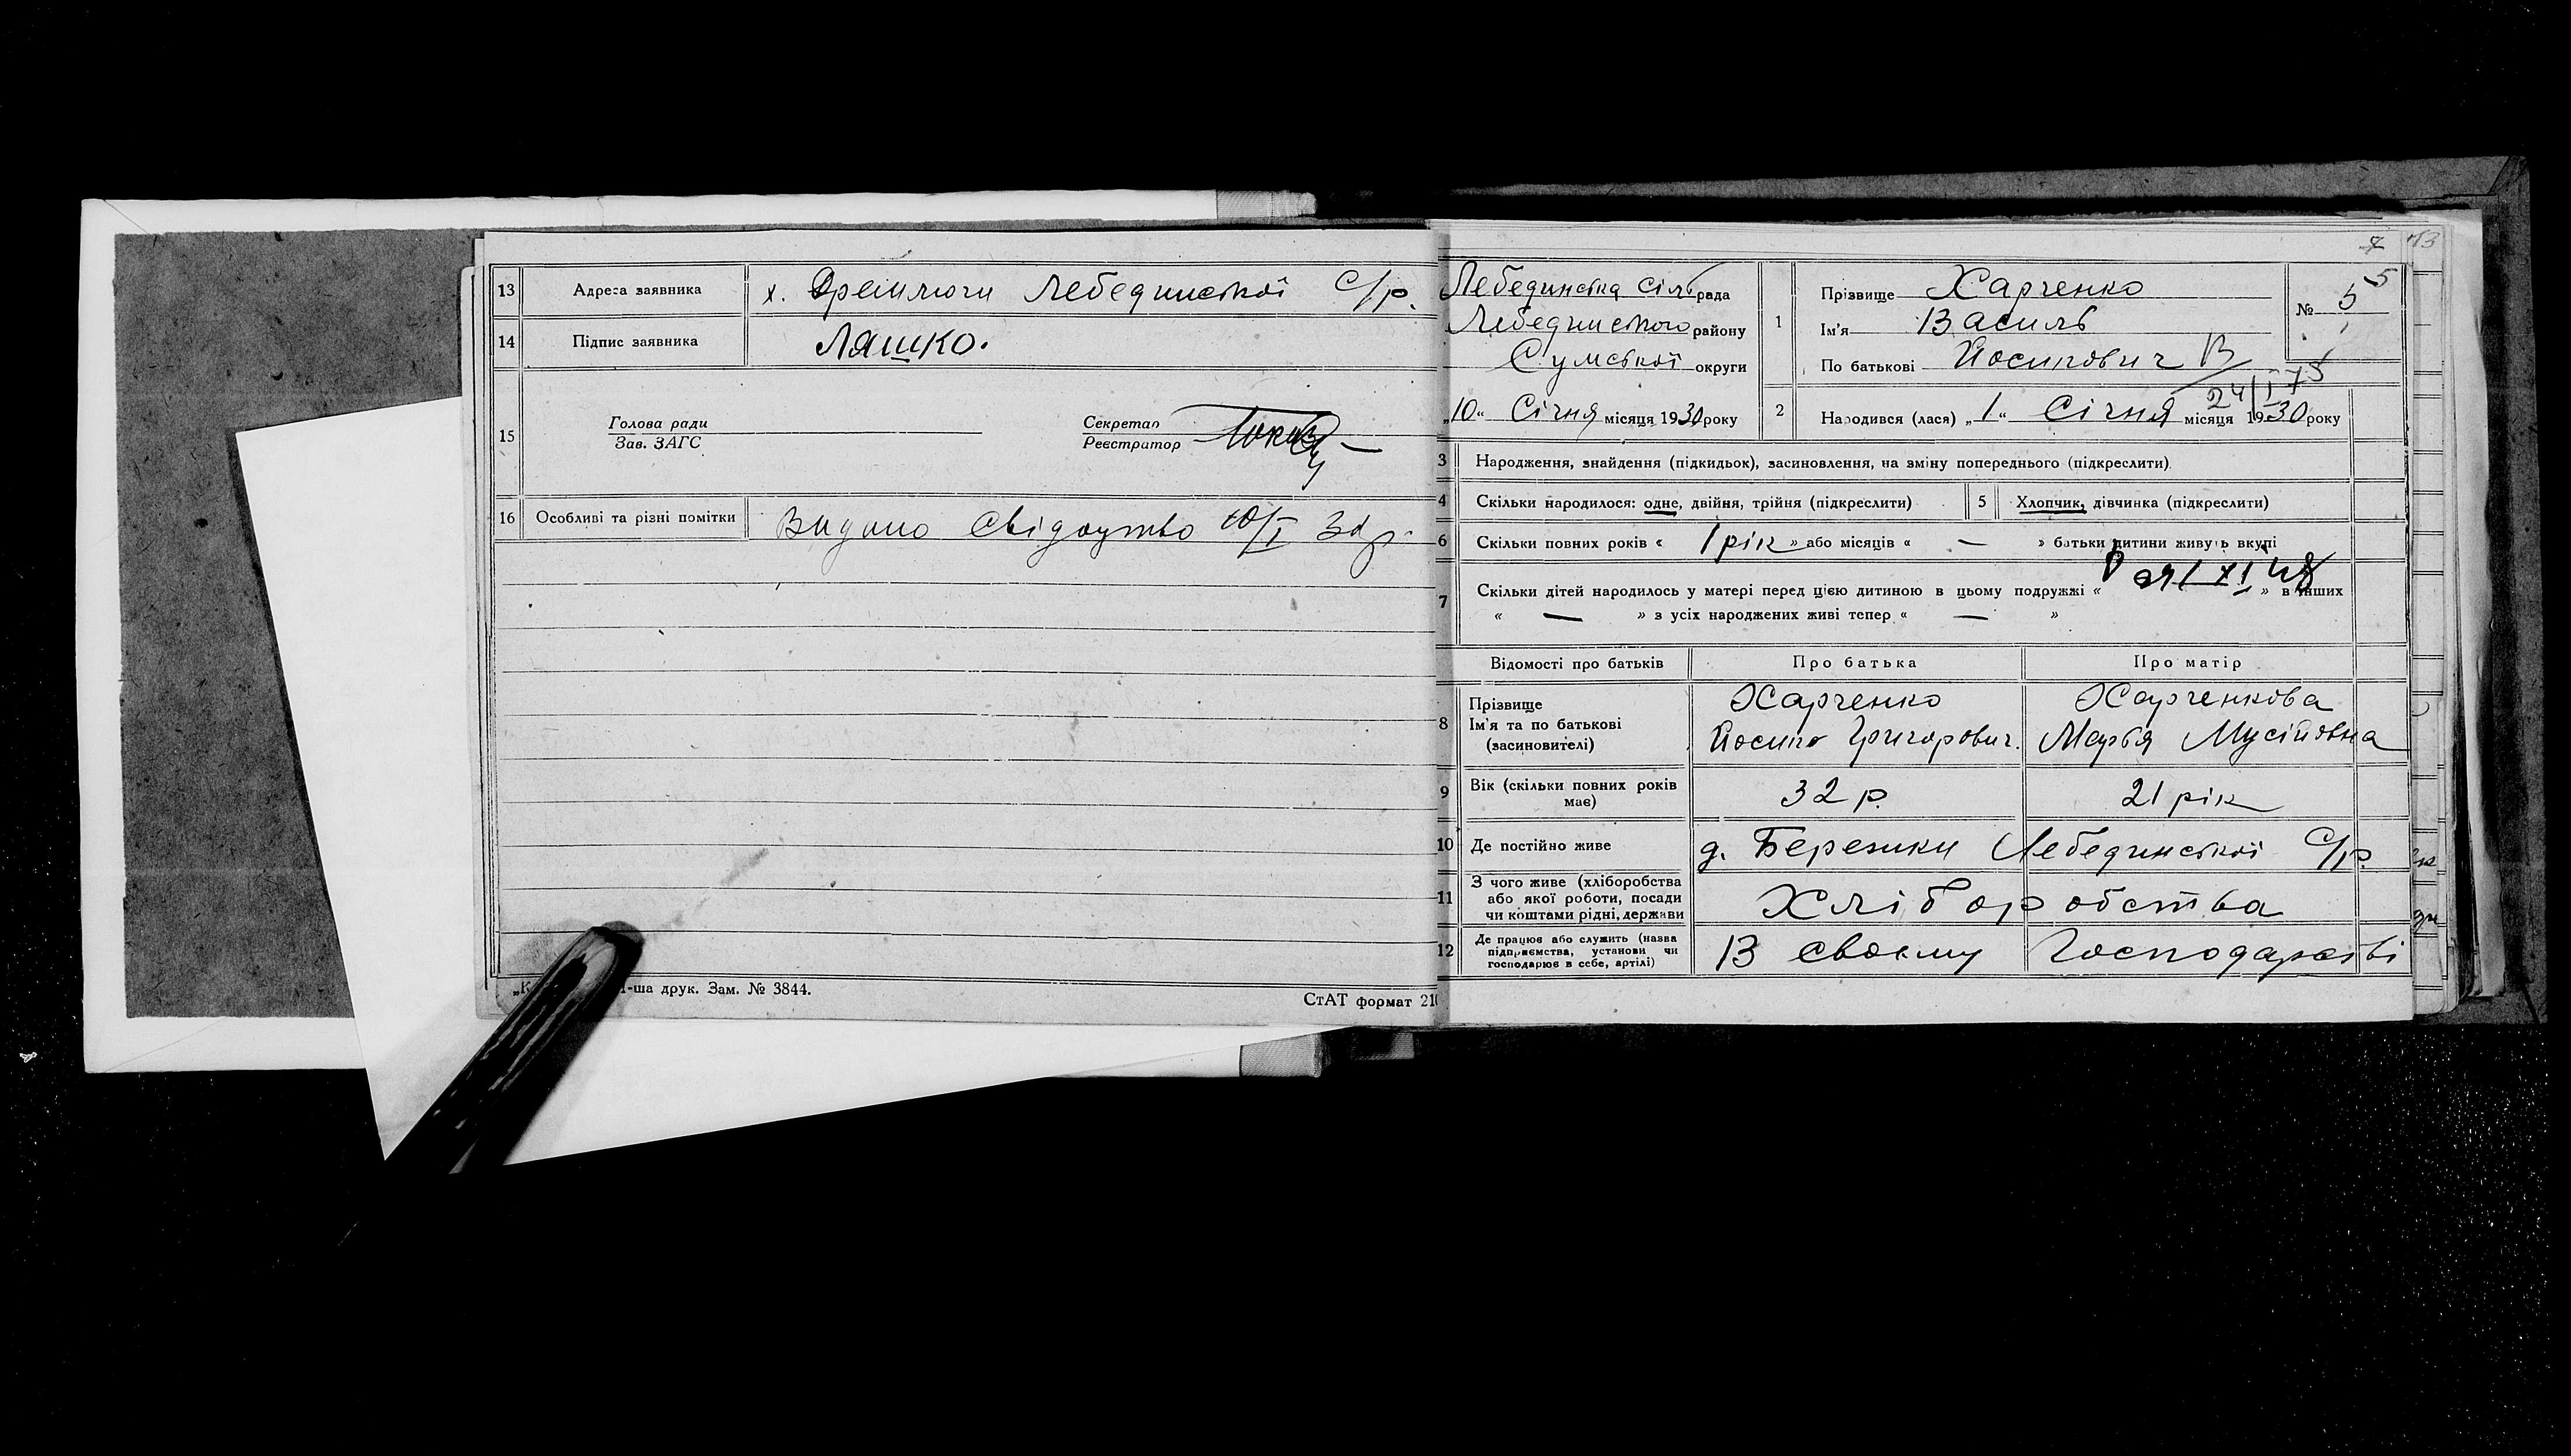 13 Адреса заявника х. Дремлюги Лебединської С/р.
14 Підпис заявника Ляшко.
15 Голова ради
Зав. ЗАГС
Секретар
Реєстратор
16 Особливі та різні помітки Видано Свідоцтво 10/I 30 р.
1-ша друк. Зам. № 3844.
СтАТ формат 210
7 13
Лебединська сіль рада
Лебединського району
Сумської округи
„10“ Січня місяця 1930 року
1 Прізвище Харченко
Ім'я Василь
По батькові Йосипович В
24/I 75
№ 5 5
2 Народився (лася) „1“ Січня місяця 1930 року
3 Народження, знайдення (підкидьок), засиновлення, на зміну попереднього (підкреслити).
4 Скільки народилося: одне, двійня, трійня (підкреслити)
5 Хлопчик, дівчинка (підкреслити)
6 Скільки повних років « 1 рік » або місяців « — » батьки дитини живуть вкупі
7 Скільки дітей народилось у матері перед цією дитиною в цьому подружжі « » в інших
« — » з усіх народжених живі тепер « — »
Відомості про батьків Про батька Про матір
8 Прізвище
Ім'я та по батькові
(засиновителі)
Харченко
Йосип Григорович.
Харченкова
Мар'я Мусіївна
9 Вік (скільки повних років має) 32 р. 21 рік
10 Де постійно живе д. Березики Лебединської С/р.
11 З чого живе (хліборобства
або якої роботи, посади
чи коштами рідні, держави
Хліборобства
12 Де працює або служить (назва
підприємства, установи чи
господарює в себе, артілі)
В своєму Господарстві